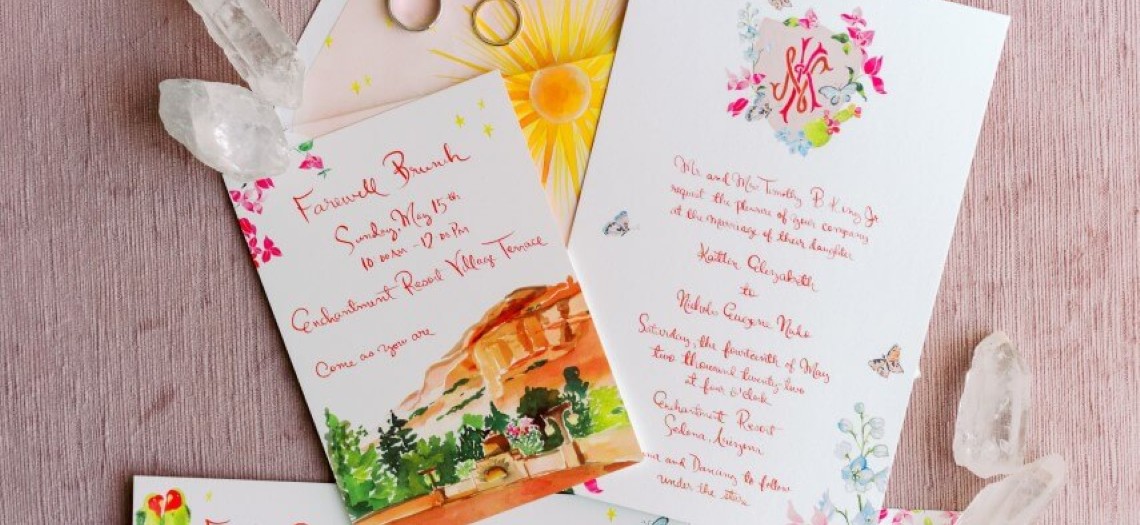 Farewell Brunch
Sunday, May 15th
10:00 AM - 12:00 PM
Enchantment Resort Village Terrace
Come as you are
NK
Mr. and Mrs. Timothy B. King Jr.
request the pleasure of your company
at the marriage of their daughter
Kaitlin Elizabeth
to
Nicholas Eugene
Saturday, the fourteenth of May
two thousand twenty two
at four o'clock
Enchantment Resort
Sedona, Arizona
and Dancing to follow
under the stars